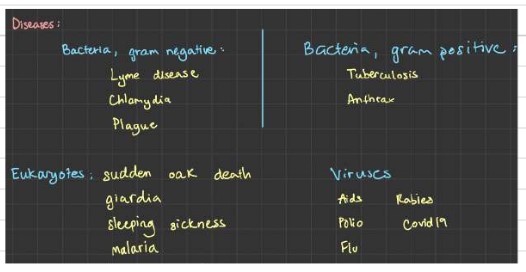 Diseases:
Bacteria, gram negative:
Lyme disease
Chlamydia
Plague
Bacteria, gram positive:
Tuberculosis
Anthrax
Eukaryotes: sudden oak death
giardia
sleeping sickness
malaria
Viruses
Aids Rabies
Polio Covid 19
Flu